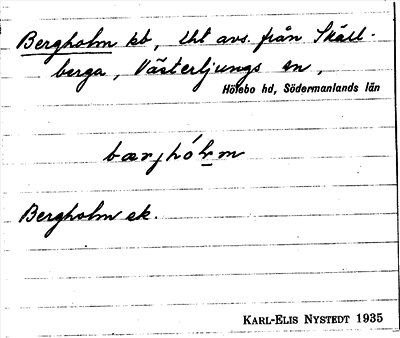 Bergholm kb, lht avs. från Skäll-
berga, Västerljungs sn,
Hölebo hd, Södermanlands län
bærjhólm
Bergholm ek.
KARL-ELIS NYSTEDT 1935